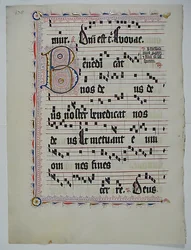 mur. Qui est t. Evovae.
Benedi cat
nos de us de
us noster benedicat nos
de us Et metuant e um
om nes fines
ter re. Deus